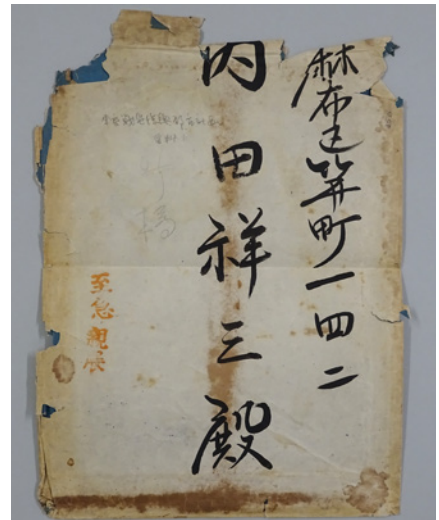 麻布区笄町一四二
内田祥三殿
至急親展